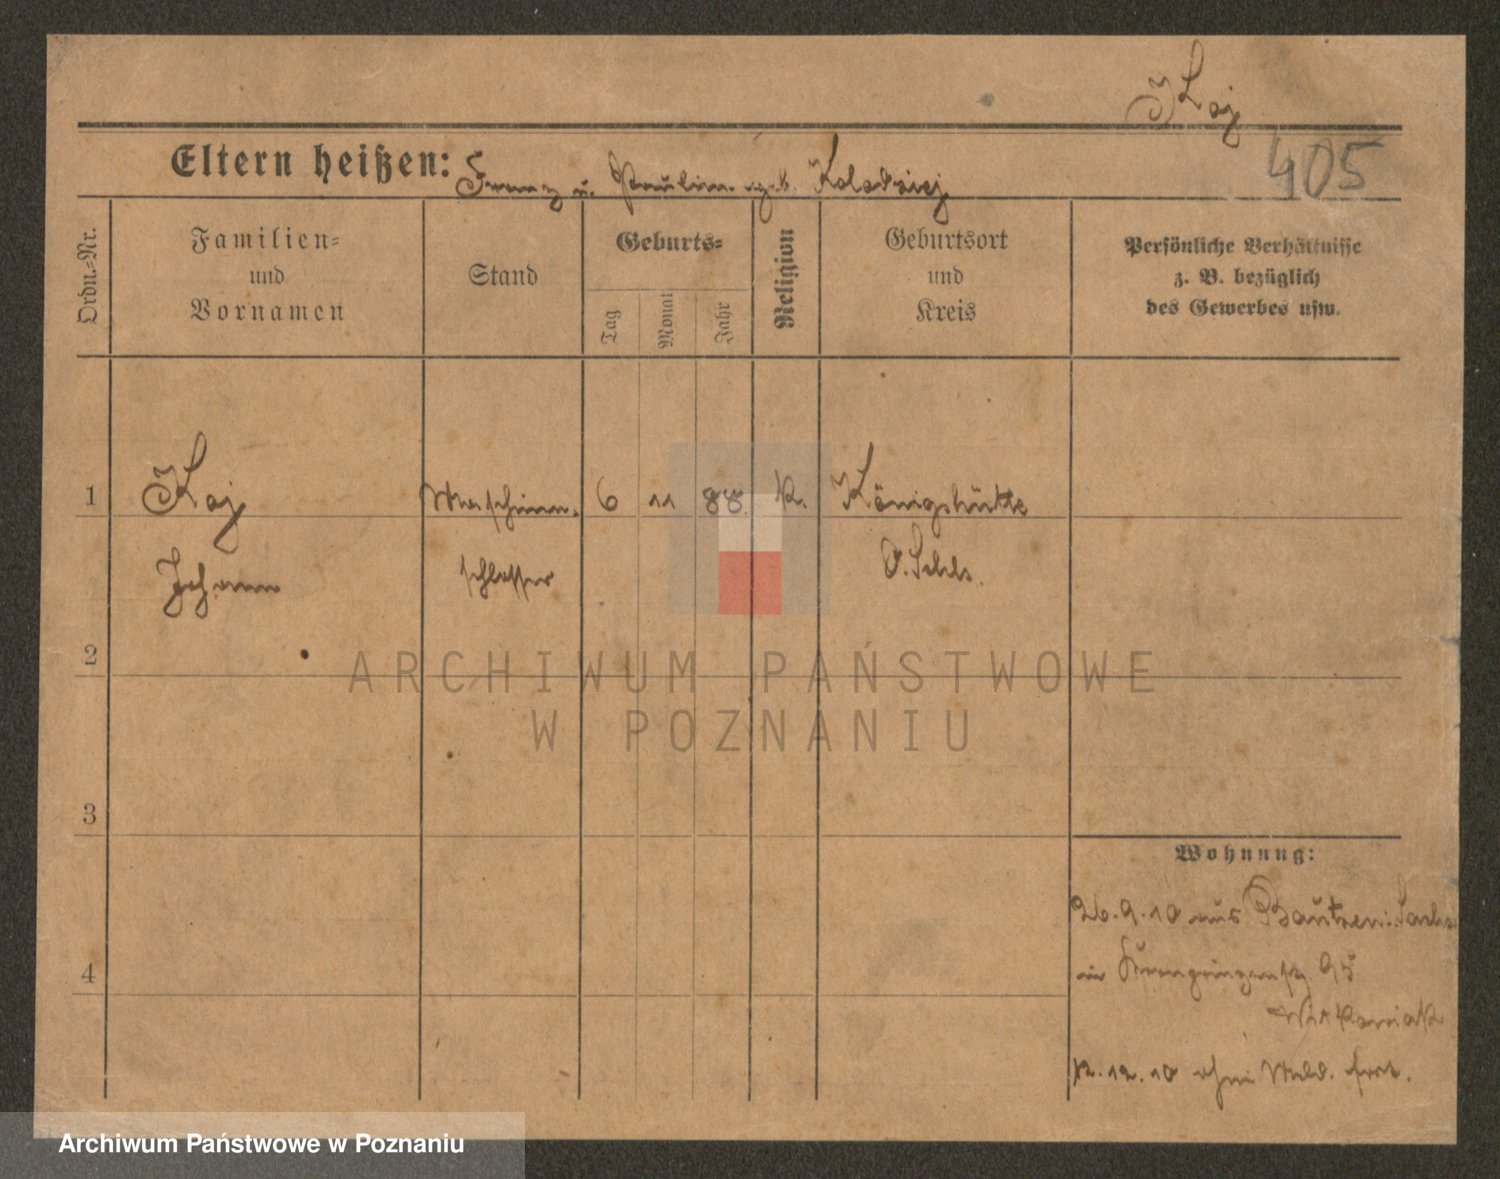 Koj
405
Eltern heißen: Franz u. Pauline geb. Kolodziej
Ordn.-Nr.
Familien-
und
Vornamen
Stand
Geburts-
Tag
Monat
Jahr
Religion
Geburtsort
und
Kreis
Persönliche Verhältnisse
z. B. bezüglich
des Gewerbes usw.
1 Koj Maschinen- 6 11 88 k. Königshütte
Johann schlosser O. Schls.
2
3
4
Wohnung:
26.9.10 aus Bautzen i. Sachs
95
12.10 ohne Meld. fort.
ARCHIWUM PAŃSTWOWE
W POZNANIU
Archiwum Państwowe w Poznaniu